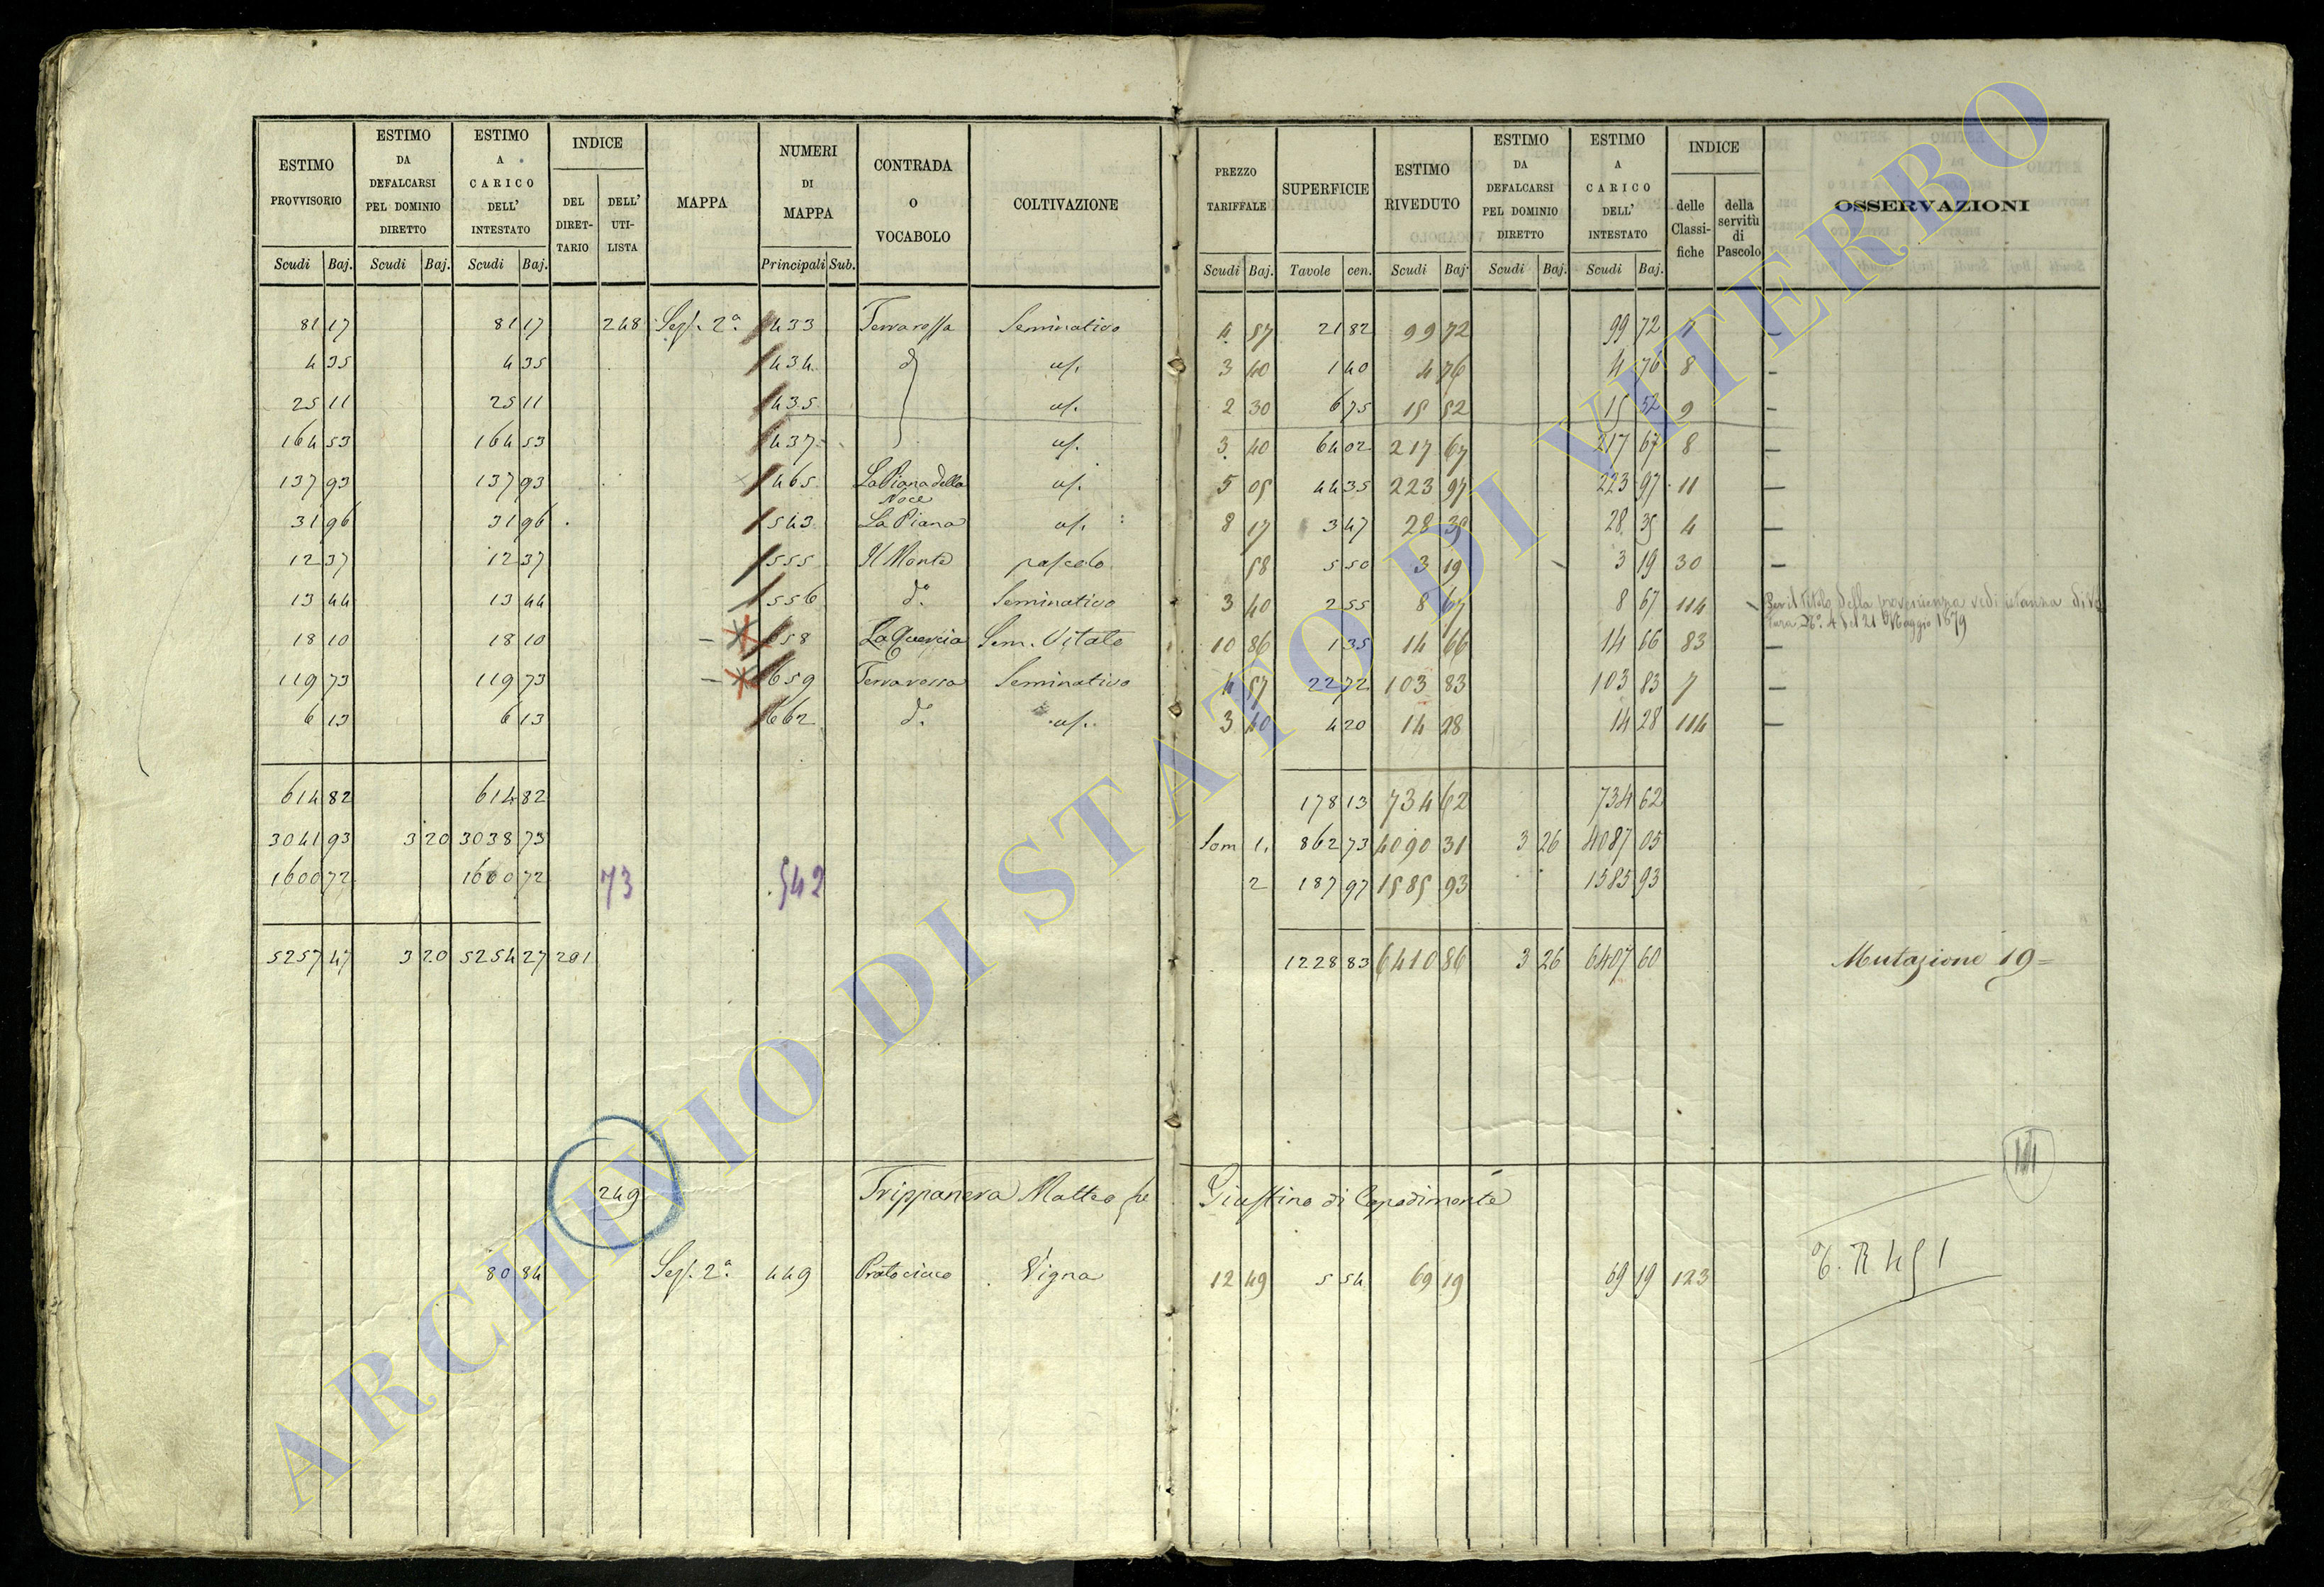 ESTIMO PROVVISORIO Scudi Baj.
ESTIMO DA DEFALCARSI PEL DOMINIO DIRETTO Scudi Baj.
ESTIMO A CARICO DELL' INTESTATO Scudi Baj.
INDICE DEL DIRET-TARIO DELL' UTI-LISTA
MAPPA
NUMERI DI MAPPA Principali Sub.
CONTRADA O VOCABOLO
COLTIVAZIONE
PREZZO TARIFFALE Scudi Baj.
SUPERFICIE Tavole cen.
ESTIMO RIVEDUTO Scudi Baj.
ESTIMO DA DEFALCARSI PEL DOMINIO DIRETTO Scudi Baj.
ESTIMO A CARICO DELL' INTESTATO Scudi Baj.
INDICE delle Classi-fiche della servitù di Pascolo
OSSERVAZIONI
81 17 81 17 248 Sez. 2ª 433 Terrarossa Seminativo 4 57 21 82 99 72 99 72 7 —
4 35 4 35 434 d us. 3 40 1 40 4 76 4 76 8 —
25 11 25 11 435 us. 2 30 6 75 15 52 15 52 9 —
164 53 164 53 437 us. 3 40 64 02 217 67 217 67 8 —
137 93 137 93 465 La Piana della Noce us. 5 05 44 35 223 97 223 97 11 —
31 96 31 96 543 La Piana us. 8 17 3 47 28 35 28 35 4 —
12 37 12 37 555 Il Monte pascolo 58 5 50 3 19 3 19 30 —
13 44 13 44 556 d.º Seminativo 3 40 2 55 8 67 8 67 114
Per il Titolo della provenienza vedi istanza di Vol
tura Nº 4 del 21 Maggio 1879
18 10 18 10 658 La Quercia Sem. Vitato 10 86 1 35 14 66 14 66 83 —
119 73 119 73 659 Terrarossa Seminativo 4 57 22 72 103 83 103 83 7 —
6 13 6 13 662 d.º us. 3 40 4 20 14 28 14 28 114 —
614 82 614 82 178 13 734 62 734 62
3041 93 3 20 3038 73 Som 1. 862 73 4090 31 3 26 4087 05
1600 72 1600 72 73 542 2 187 97 1585 93 1585 93
5257 47 3 20 5254 27 201 1228 83 6410 86 3 26 6407 60 Mutazione 19=
249 Trippanera Matteo fu Giustino di Capodimonte
80 84 Sez. 2ª 449 Vigna 12 49 5 54 69 19 69 19 123
ARCHIVIO DI STATO DI VITERBO